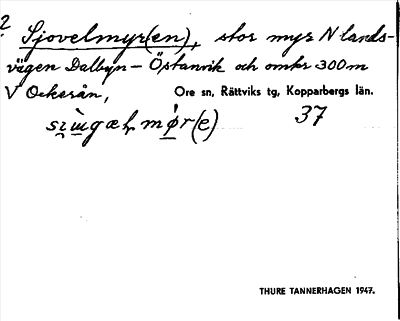 2
Sjovelmyr(en), stor myr N lands-
vägen Dalbyn – Östanvik och omkr 300 m
V Ockerån, Ore sn, Rättviks tg, Kopparbergs län.
37
THURE TANNERHAGEN 1947.